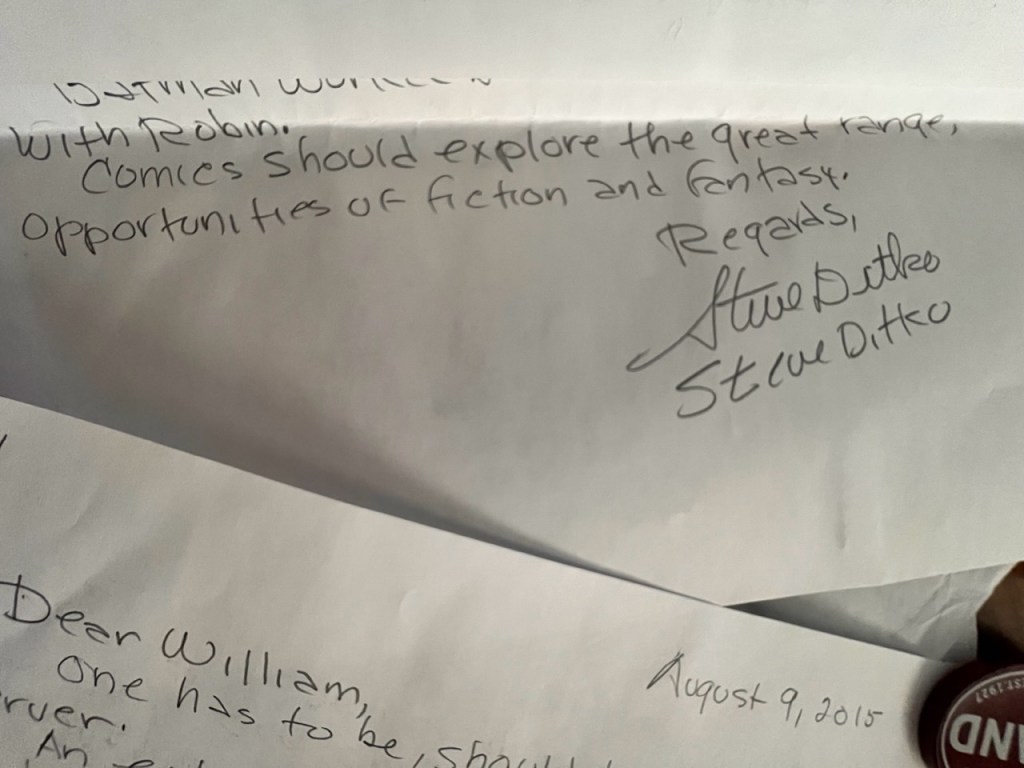 Batman worked
with Robin.
Comics should explore the great range,
opportunities of fiction and fantasy.
Regards,
Steve Ditko
Steve Ditko
August 9, 2015
Dear William,
One has to be, should
rver.
An
EST. 1927
AND